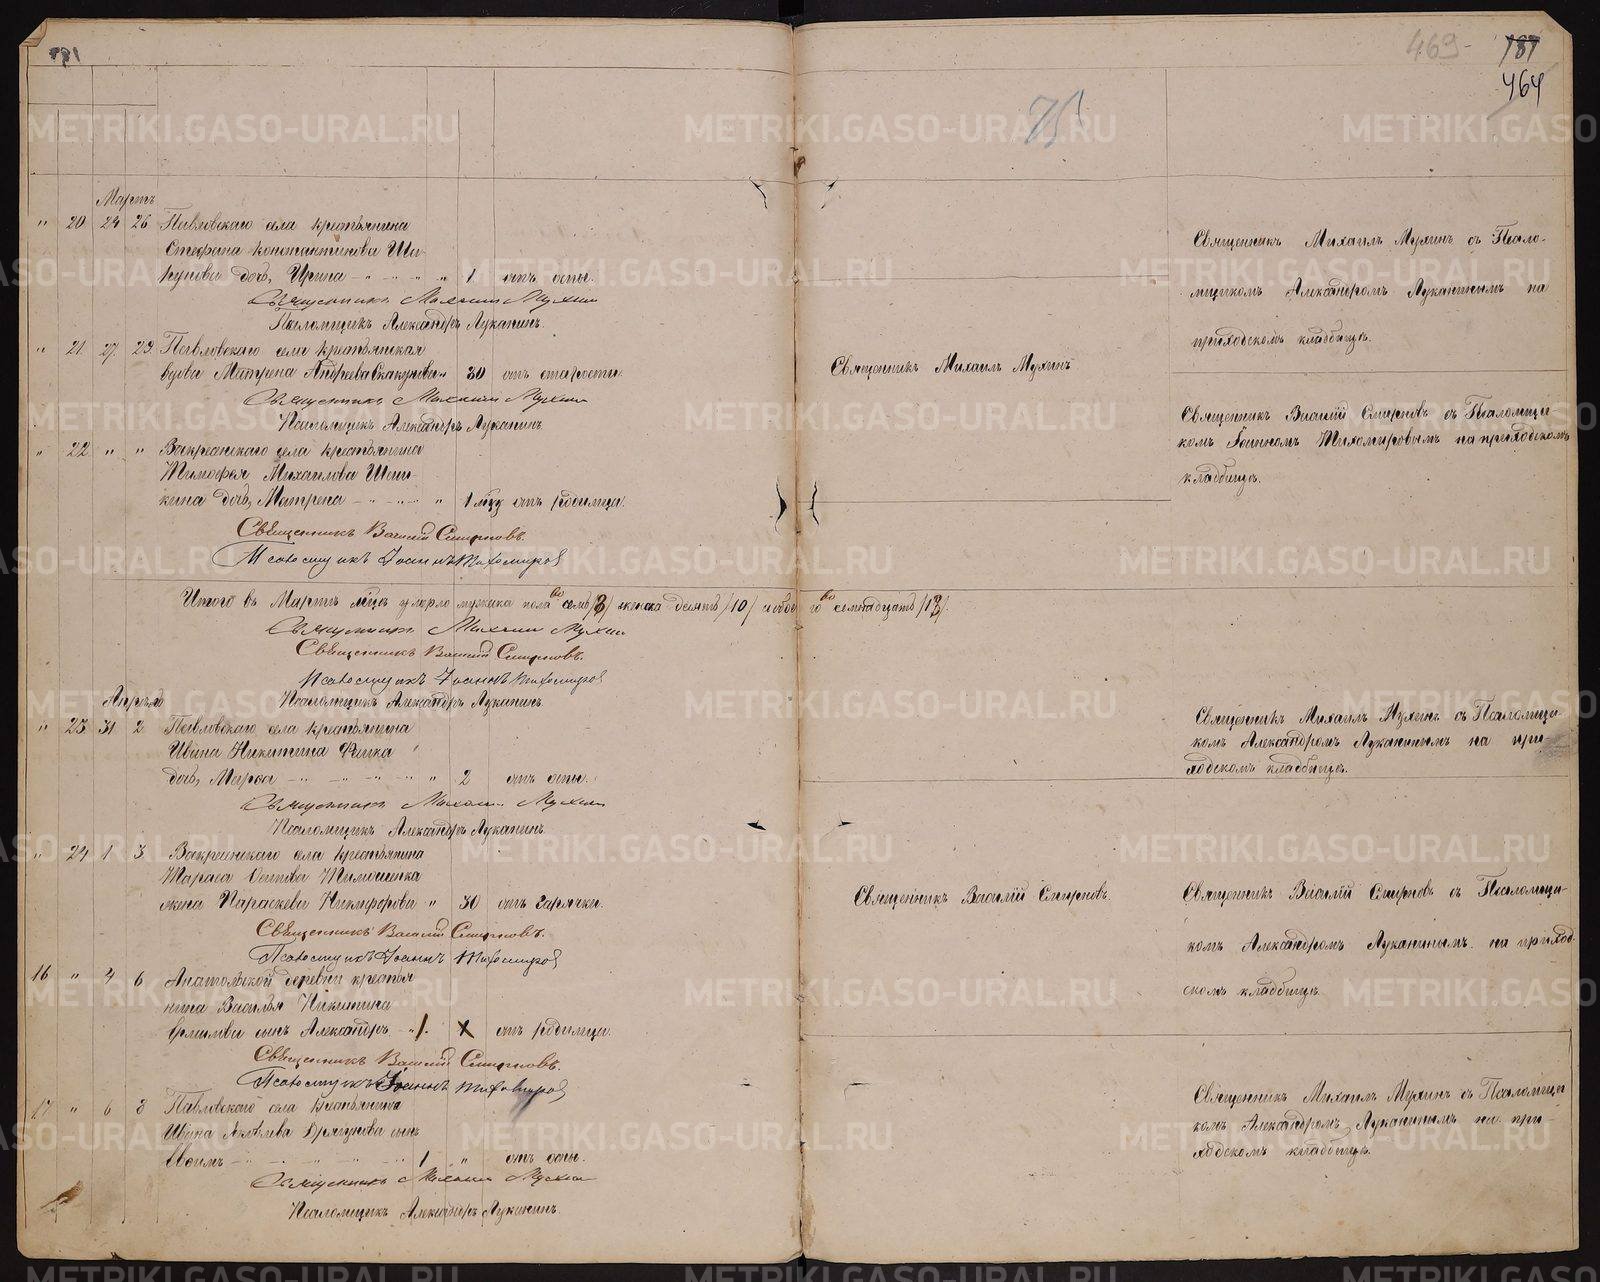 469
187
464
75
Мартъ
" 20 24 26 Павловскаго села крестьянина
Стефана Константинова Ши-
кунова дочь, Ирина 1 отъ оспы.
Священникъ Михаилъ Мухинъ
Псаломщикъ Александръ Луканинъ.
" 21 27 29 Павловскаго села крестьянская
вдова Матрена Андреева 80 отъ старости.
Священникъ Михаилъ Мухинъ
Псаломщикъ Александръ Луканинъ.
" 22 " " Воскресенскаго села крестьянина
Тимофея Михаилова
дочь, Матрена 1 мцу отъ родимца.
Священникъ Василій Смирновъ.
Псаломщикъ Іоаннъ Тихомировъ
Итого въ Мартѣ мцѣ умерло мужска пола женска десять /10/ и обое
Священникъ Михаилъ Мухинъ
Священникъ Василій Смирновъ.
Псаломщикъ Іоаннъ Тихомировъ
Псаломщикъ Александръ Луканинъ.
Апрѣль
" 23 31 2 Павловскаго села крестьянина
Ивана Никитина
дочь, Марѳа 2 отъ оспы.
Священникъ Михаилъ Мухинъ
Псаломщикъ Александръ Луканинъ.
" 24 1 3 Воскресенскаго села крестьянина
Тараса Осипова Тимошенка
жена Параскева Никифорова " 30 отъ горячки.
Священникъ Василій Смирновъ.
Псаломщикъ Іоаннъ Тихомировъ
16 " 4 6 Анатольской деревни крестья
нина Василья Никитина
сынъ Александръ 1. отъ родимца.
Священникъ Василій Смирновъ.
Псаломщикъ Іоаннъ Тихомировъ
17 " 6 8 Павловскаго села крестьянина
Ивана Яковлева сынъ
1 " отъ оспы.
Священникъ Михаилъ Мухинъ
Псаломщикъ Александръ Луканинъ.
Священникъ Михаилъ Мухинъ съ Псало-
мщикомъ Александромъ Луканинымъ на
приходскомъ кладбищѣ.
Священникъ Михаилъ Мухинъ
Священникъ Василій Смирновъ съ Псаломщи
комъ Іоанномъ Тихомировымъ на приходскомъ
кладбищѣ.
Священникъ Михаилъ Мухинъ съ Псаломщи-
комъ Александромъ Луканинымъ на при-
ходскомъ кладбищѣ.
Священникъ Василій Смирновъ.
Священникъ Василій Смирновъ съ Псаломщи-
комъ Александромъ Луканинымъ на приход-
скомъ кладбищѣ.
Священникъ Михаилъ Мухинъ съ Псаломщи
комъ Александромъ Луканинымъ на при-
ходскомъ кладбищѣ.
METRIKI.GASO-URAL.RU